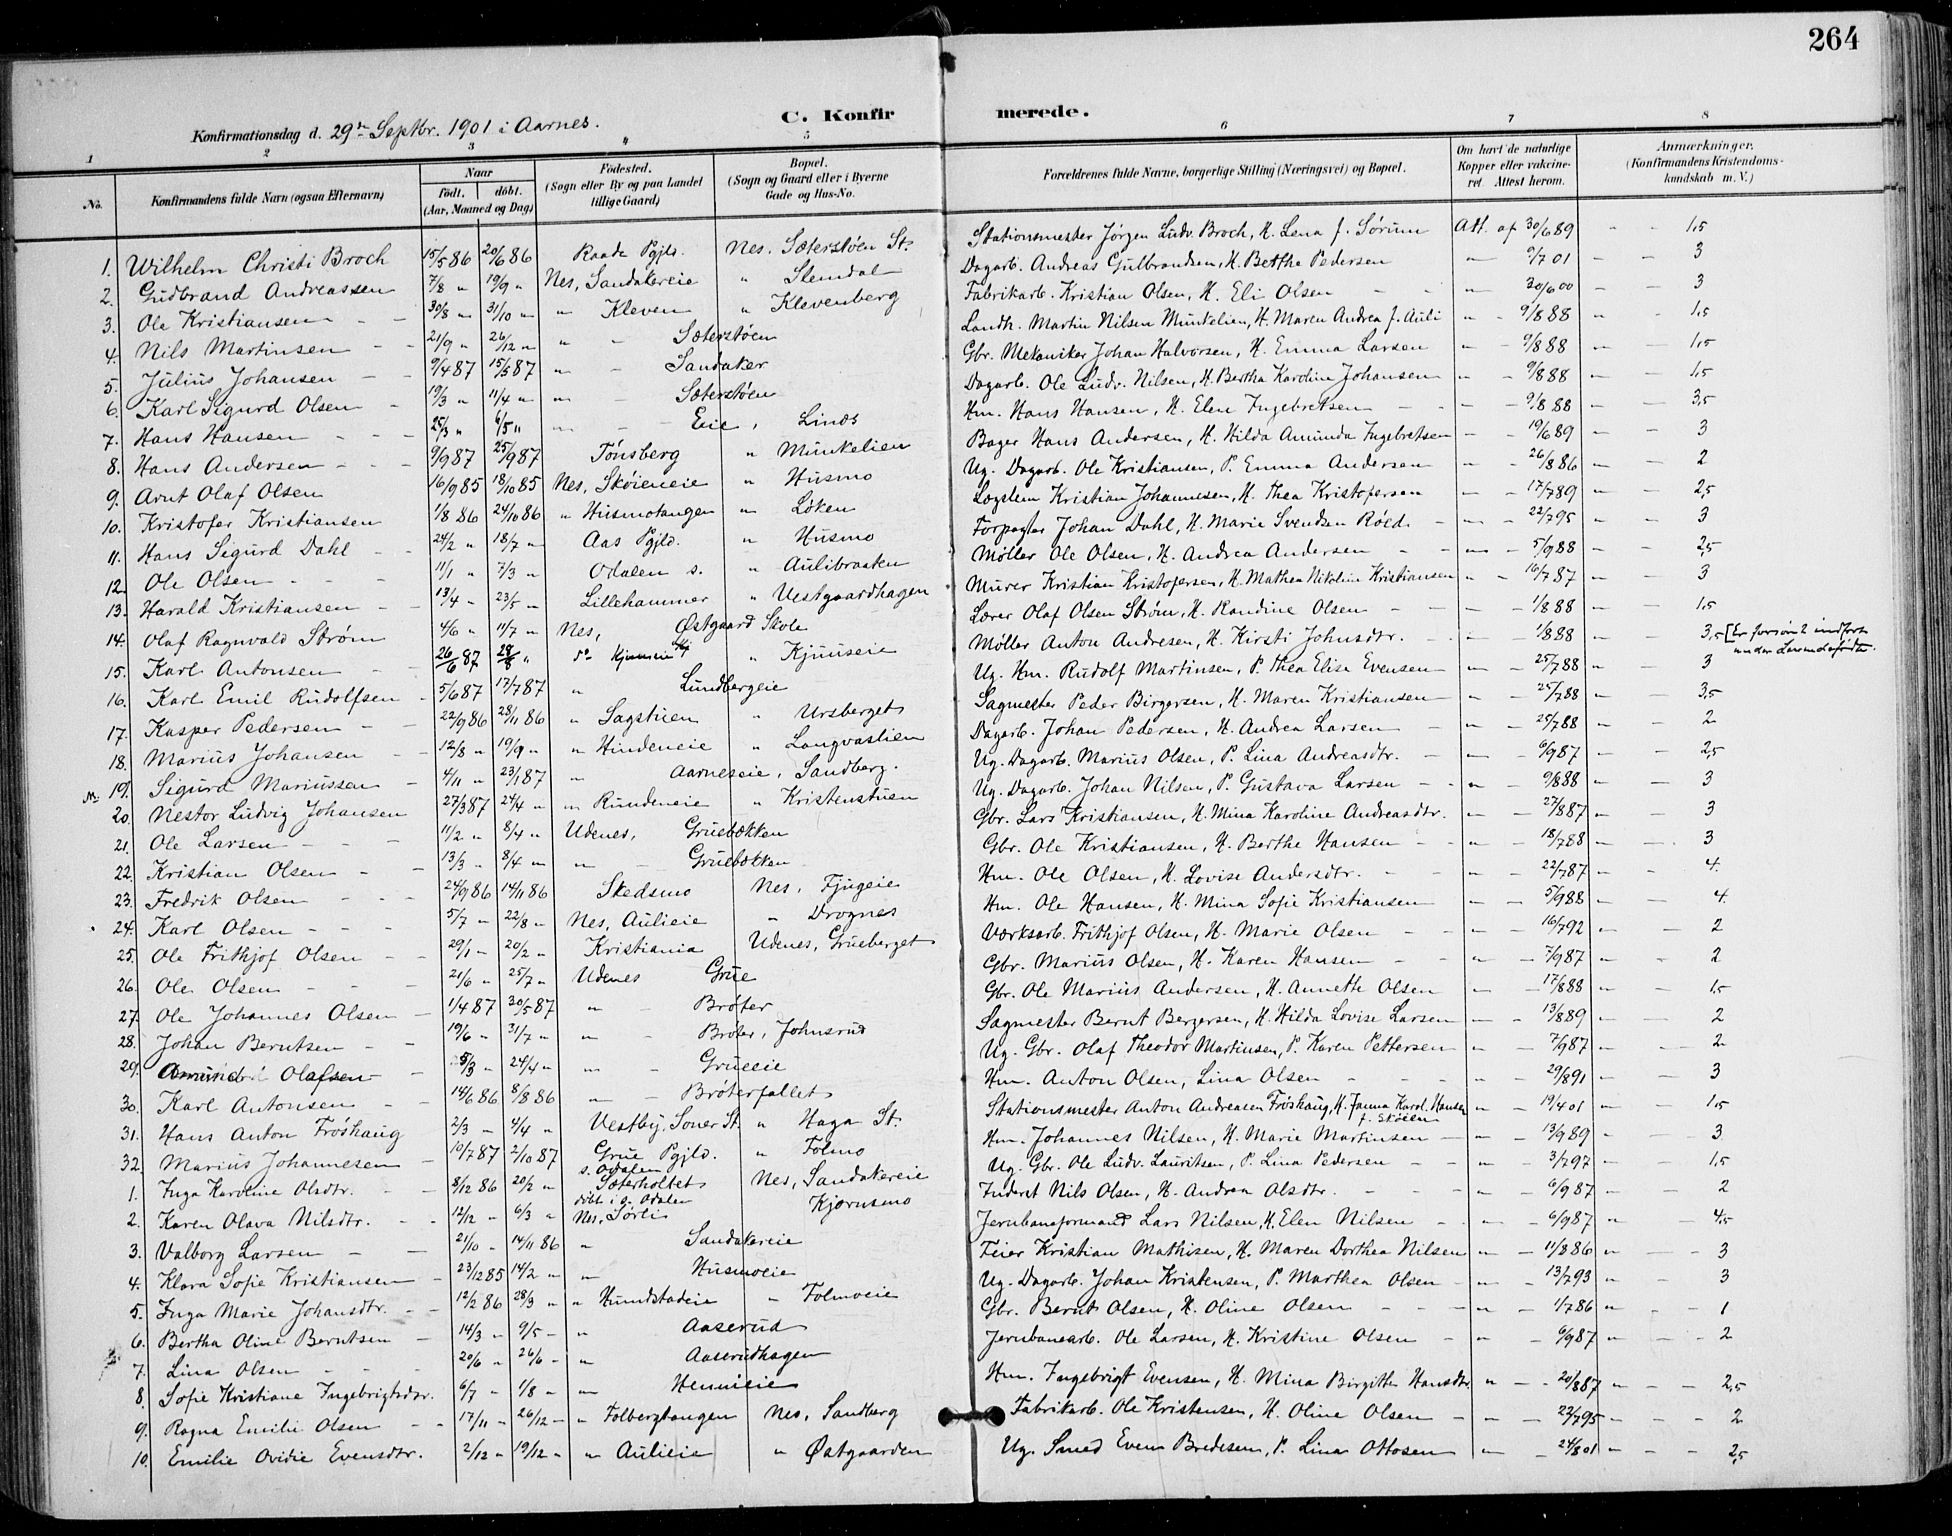 264
C. Konfirmerede.
Konfirmationsdag d. 29de Septbr. 1901 i Aarnes.
1 2 3 4 5 6 7 8
No. Konfirmandens fulde Navn (ogsaa Efternavn) Naar født. døbt. (Aar, Maaned og Dag) Fødested. (Sogn eller By og paa Landet tillige Gaard) Bopæl. (Sogn og Gaard eller i Byerne Gade og Hus-No. Forældrenes fulde Navne, borgerlige Stilling (Næringsvei) og Bopæl. Om havt de naturlige Kopper eller vakcineret. Attest herom. Anmærkninger. (Konfirmandens Kristendomskundskab m. V.)
1. Wilhelm Christi Broch 15/5 86 20/6 86 Raade Pgjld. Nes. Sæterstøen St. Stationsmester Jørgen Ludv. Broch, H. Lena f. Sørum Att. af 30/6 89 " - 1,5
2. Gudbrand Andreassen 7/8 " 19/9 " Nes, Sandakereie " Slemdal Dagarb. Andreas Gulbrandsen, H. Berthe Pedersen " 9/7 01 - - 3
3. Ole Kristiansen 30/8 " 31/10 " " Kleven " Klevenberg Fabrikarb. Kristian Olsen, H. Eli Olsen " 30/6 00 - - 3
4. Nils Martinsen 21/9 " 26/12 " " - Sæterstøen Landh. Martin Nilsen Munkelien, H. Maren Andrea f. Auli " - 9/8 88 " - 1,5
5. Julius Johansen 9/4 87 15/5 87 " - Sandaker Gbr. Mekaniker Johan Halvorsen, H. Emma Larsen " - 9/8 88 " - 1,5
6. Karl Sigurd Olsen 19/3 " 11/4 " " - Sæterstøen Dagarb. Ole Ludv. Nilsen, H. Bertha Karoline Johansen " - 9/8 88 " - 1,5
7. Hans Hansen 25/3 " 6/5 " " - Eie, Linds Hm. Hans Hansen, H. Elen Ingebretsen " - 9/8 88 - - 3,5
8. Hans Andersen 9/9 87 25/9 87 Tønsberg " Munkelien Bager Hans Andersen, H. Hilda Amunda Ingebretsen " - 19/6 89 - - 3
9. Arnt Olaf Olsen 16/9 85 18/10 85 Nes, Skøieneie " Husmo Ug. Dagarb. Ole Kristiansen, P. Emma Andersen " - 26/8 86 - - 2
10. Kristofer Kristiansen 1/8 86 24/10 86 " Husmotangen " Løken Lægslem Kristian Johannesen, H. Thea Kristofersen " - 17/7 89 " - 2,5
11. Hans Sigurd Dahl 24/2 " 18/7 " Aas Pgjld. " Husmo Forpagter Johan Dahl, H. Marie Svendsen Røed. " - 22/7 95 - - 3
12. Ole Olsen 11/1 " 7/3 " Odalen s. " Aulibraaten Møller Ole Olsen, H. Andrea Andersen " - 5/9 88 " - 2,5
13. Harald Kristiansen 13/4 " 23/5 " Lillehammer " Vestgaardhagen Murer Kristian Kristofersen, H. Mathea Nikoline Kristiansen " - 16/7 87 " - 3
14. Olaf Ragnvald Strøm 4/6 " 11/7 " Nes, Østgaard Skole Lærer Olaf Olsen Strøm, H. Randine Olsen - 1/8 88 - - 1,5
15. Karl Antonsen 26/6 87 28/8 " do Kjuuseie " Kjuuseie Møller Anton Andresen, H. Kirsti Johnsdtr. " - 1/8 88 " - 3,5 [Er forsøn?
16. Karl Emil Rudolfsen 5/6 87 17/7 87 " Lundbergeie Ug. Hm. Rudolf Martinsen, P. Thea Elise Evensen " - 25/7 88 " - 3
17. Kasper Pedersen 22/9 86 28/11 86 " Sagstuen " Ursberget Sagmester Peder Birgersen, H. Maren Kristiansen " - 25/7 88 " - 3,5
18. Marius Johansen 12/8 " 19/9 " " Hindeneie " Langvastien Dagarb. Johan Pedersen, H. Andrea Larsen " - 25/7 88 " - 2
19. Sigurd Mariussen 4/11 " 23/1 87 " Aarneseie, Sandberg. Ug. Dagarb. Marius Olsen, P. Lina Andreasdtr. " - 6/9 87 " - 2,5
20. Nestor Ludvig Johansen 27/3 87 24/4 " " Rundeneie " Kristenstuen Ug. Dagarb. Johan Nilsen, P. Gustava Larsen " - 9/8 88 - - 3
21. Ole Larsen 11/2 " 8/4 " Udenes, Gruebækken Gbr. Lars Kristiansen, H. Mina Karoline Andreasdtr. " - 27/8 87 - - 3
22. Kristian Olsen 13/3 " 8/4 " " - Gruebækken Gbr. Ole Kristiansen, H. Berthe Hansen " - 18/7 88 " - 3
23. Fredrik Olsen 24/9 86 14/11 86 Skedsmo Nes, Fjugeie Hm. Ole Olsen, H. Lovise Andersdtr. " - 22/7 87 - - 4.
24. Karl Olsen 5/7 " 22/8 " Nes, Aulieie " Drognes Hm. Ole Hansen, H. Mina Sofie Kristiansen " - 5/9 88 - - 4.
25. Ole Frithjof Olsen 29/1 " 20/2 " Kristiania Udenes, Grueberget Værksarb. Frithjof Olsen, H. Marie Olsen " - 16/7 92 - - 2
26. Ole Olsen 21/6 " 25/7 " Udenes Grue Gbr. Marius Olsen, H. Karen Hansen " - 7/9 87 " - 2
27. Ole Johannes Olsen 1/4 87 30/5 87 " - Brøter Gbr. Ole Marius Andersen, H. Annette Olsen " - 17/8 88 - - 1,5
28. Johan Berntsen 19/6 " 31/7 " " - Brøter, Johnsrud Sagmester Bernt Bergersen, H. Hilda Lovise Larsen " - 13/8 89 " - 2
29. Amund Olafsen 5/3 " 24/4 " " - Grueeie Ug. Gbr. Olaf Theodor Martinsen, P. Karen Pettersen " - 7/9 87 - - 2
30. Karl Antonsen 14/6 86 8/8 86 " - Brøterfallet Hm. Anton Olsen, Lina Olsen " - 29/8 91 - - 3
31. Hans Anton Frøshaug 2/3 " 4/4 " Vestby, Soner St. " Haga St. Stationsmester Anton Andreasen Frøshaug, H. Janna Karol. Hansen f. Skøien " - 19/4 01 - - 1,5
32. Marius Johannesen 10/7 87 2/10 87 Grue Pgjld. " Folmo Hm. Johannes Nilsen, H. Marie Martinsen " - 13/9 89 " - 3
1. Inga Karoline Olsdtr. 8/12 86 20/2 " s. Odalen Sæterholtet Nes, Sandakereie Ug. Gbr. Ole Ludv. Lauritsen, P. Lina Pedersen " - 3/7 97 " - 1,5
2. Karen Olava Nilsdtr. 12/12 " 6/3 " døbt i s. Odalen Nes, Sørli Kjørnsmo Inderst Nils Olsen, H. Andrea Olsdtr. " - 6/9 87 " - 2
3. Valborg Larsen 21/10 " 14/11 86 " Sandakereie Jernbaneformand Lars Nilsen, H. Elen Nilsen " - 6/9 87 " - 4,5
4. Klara Sofie Kristiansen 23/12 85 14/2 " " Husmoeie Feier Kristian Mathisen, H. Maren Dorthea Nilsen " - 11/8 86 - - 3
5. Inga Marie Johansdtr. 12/2 86 28/3 " " Hundstadeie " Folmoeie Ug. Dagarb. Johan Kristensen, P. Marthea Olsen " - 13/7 93 " - 3
6. Bertha Oline Berntsen 14/3 " 9/5 - " Aaserud Gbr. Bernt Olsen, H. Oline Olsen " - 1/7 86 " - 1
7. Lina Olsen 20/6 " 26/6 - " Aaserudhagen Jernbanearb. Ole Larsen, H. Kristine Olsen " - 6/9 87 - - 2
8. Sofie Kristiane Ingebrigtsdtr. 6/7 " 1/8 - " Hennieie Hm. Ingebrigt Evensen, H. Mina Birgitte Hansdtr. " - 20/8 87 " - 2,5
9. Ragna Emilie Olsen 17/11 " 26/12 - " Folbergtangen Nes, Sandberg Fabrikarb. Ole Kristensen, H. Oline Olsen " - 22/7 95 - - 2
10. Emilie Ovidie Evensdtr. 2/12 " 19/12 - " Aulieie " Østgaarden Ug. Smed Even Bredesen, P. Lina Ottosen " - 24/8 01 " - 2,5